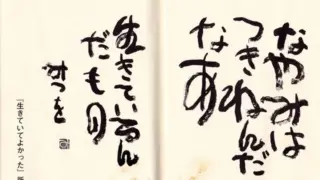 なやみは
つきねんだ
なあ
生きているん
だもの
みつを
『生きていてよかった』